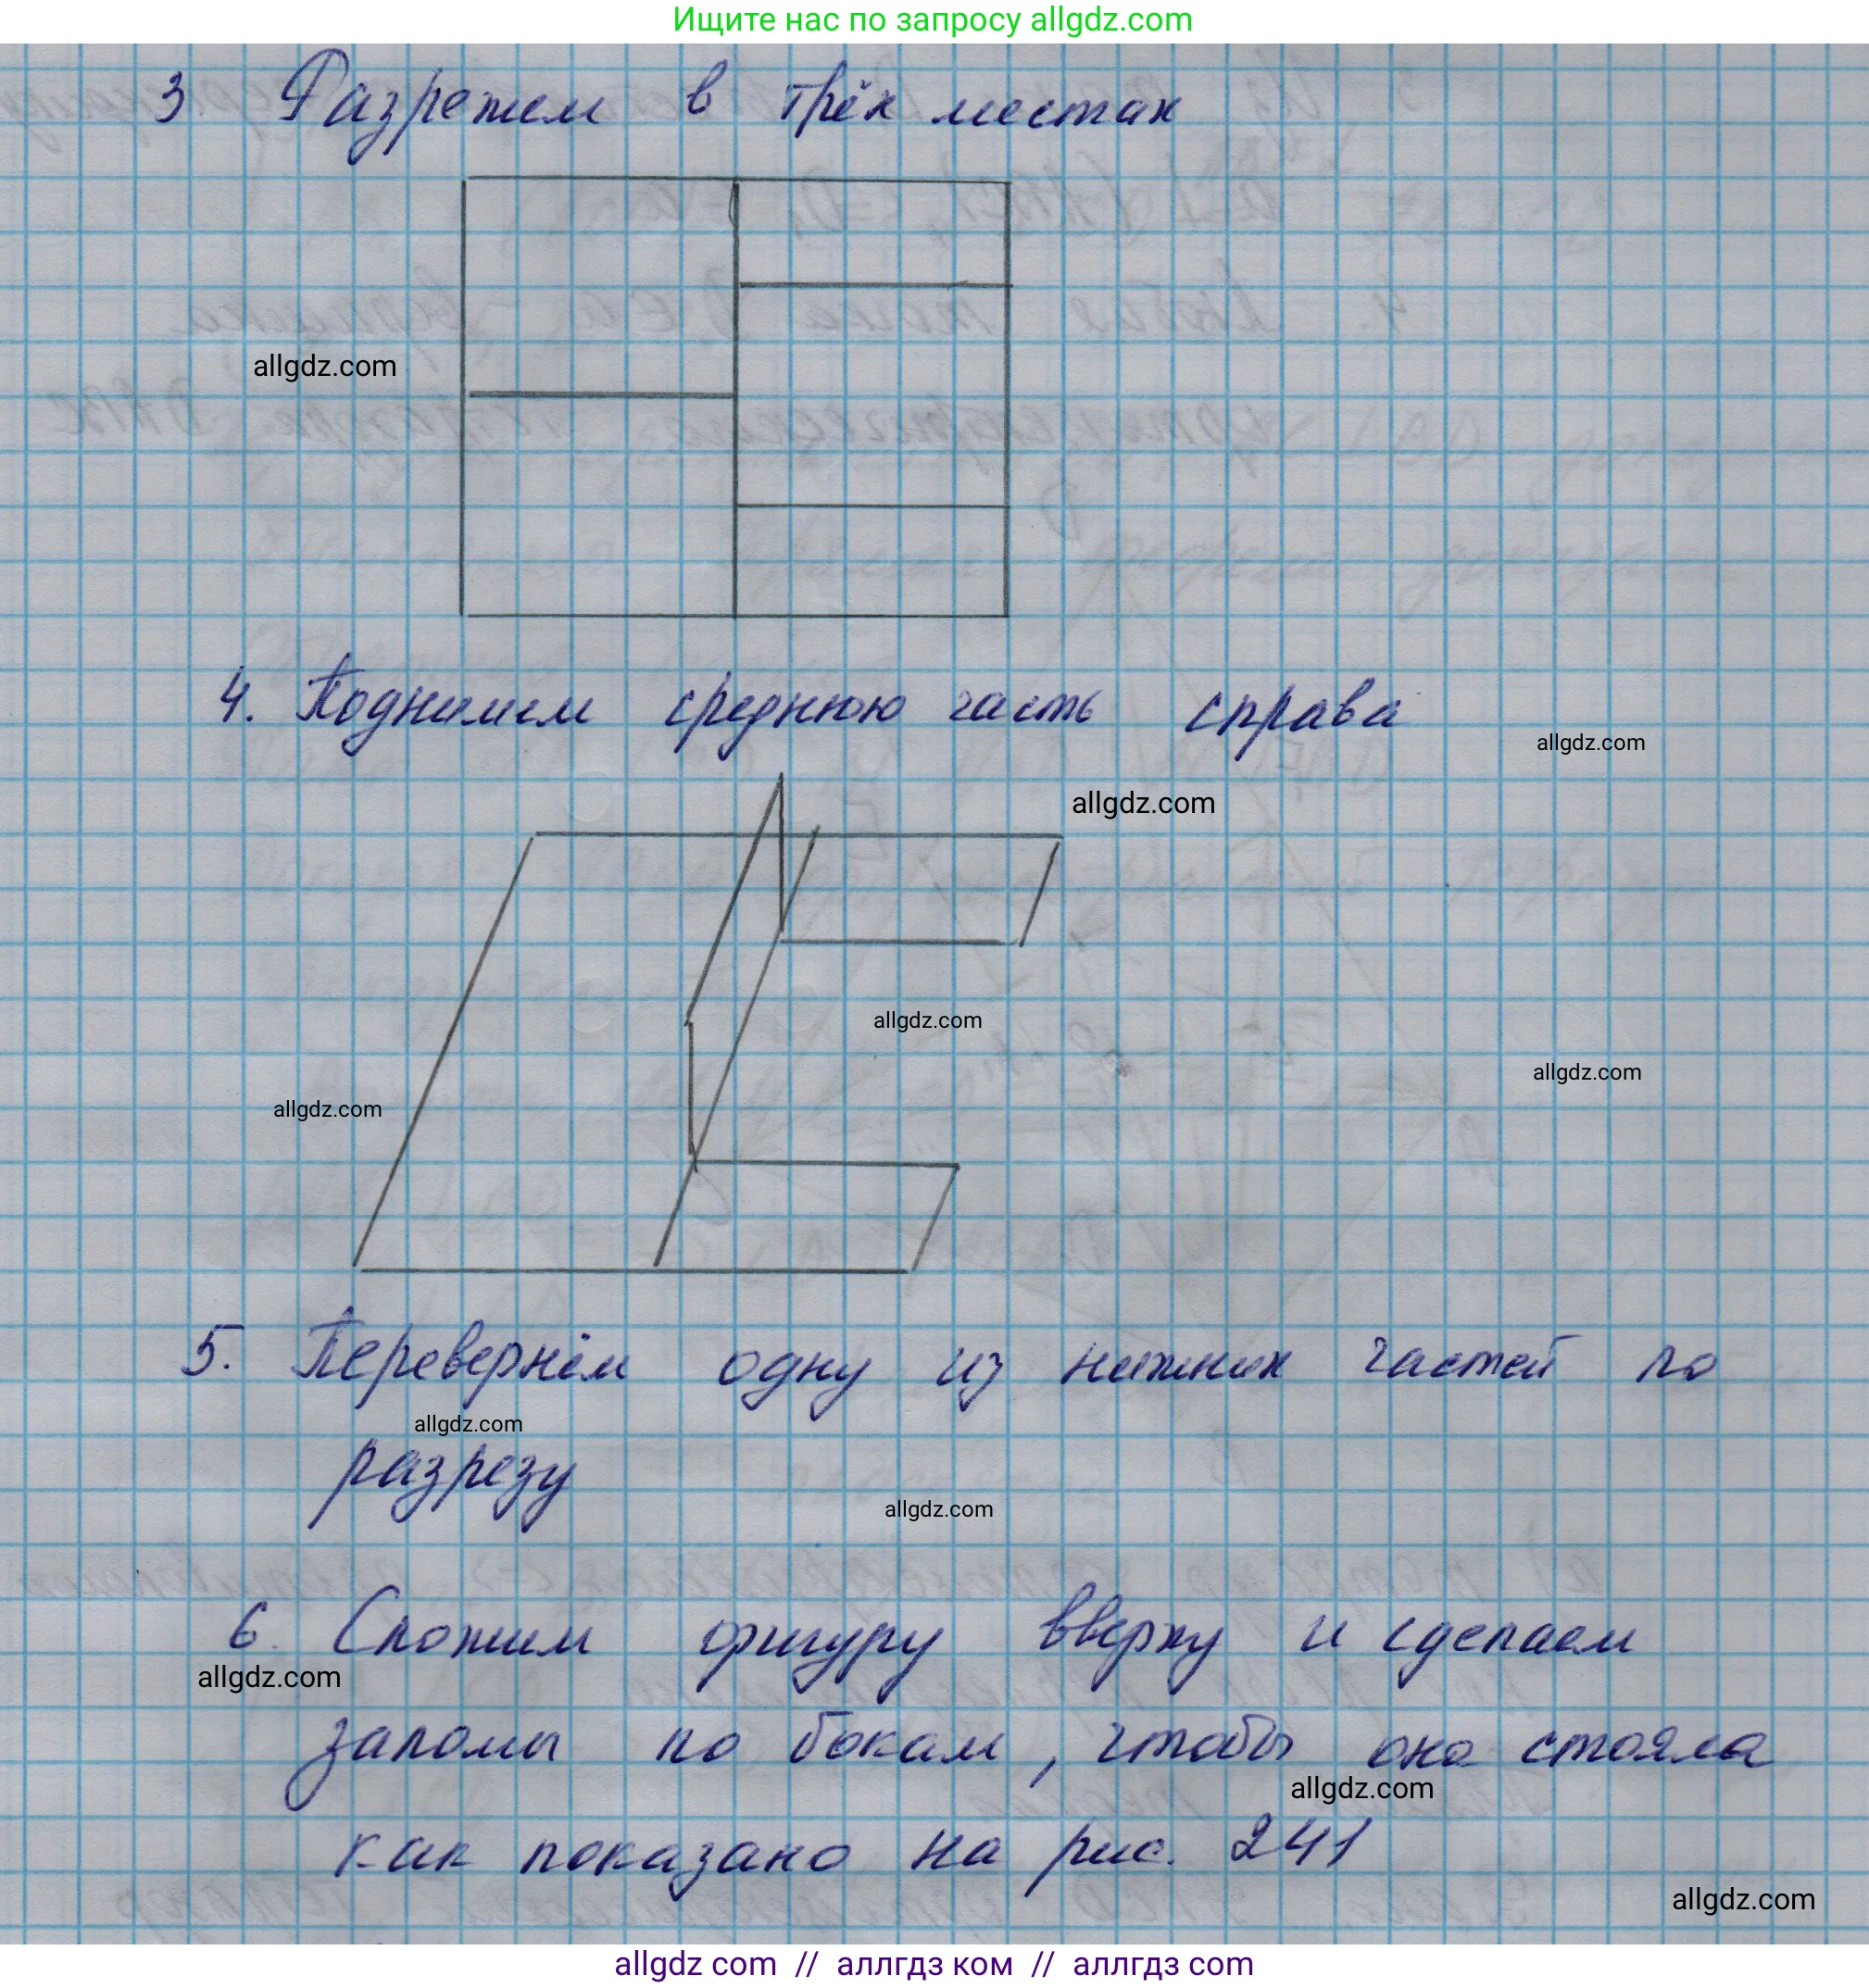 Ищите нас по запросу allgdz.com
3. Разрежем в трёх местах
allgdz.com
4. Поднимем среднюю часть справа
allgdz.com
allgdz.com
allgdz.com
allgdz.com
allgdz.com
5. Перевернём одну из нижних частей по
allgdz.com
разрезу
allgdz.com
6. Сложим фигуру вверху и сделаем
allgdz.com
заломы по бокам, чтобы она стояла
allgdz.com
как показано на рис. 241
allgdz.com
allgdz com // аллгдз ком // аллгдз com